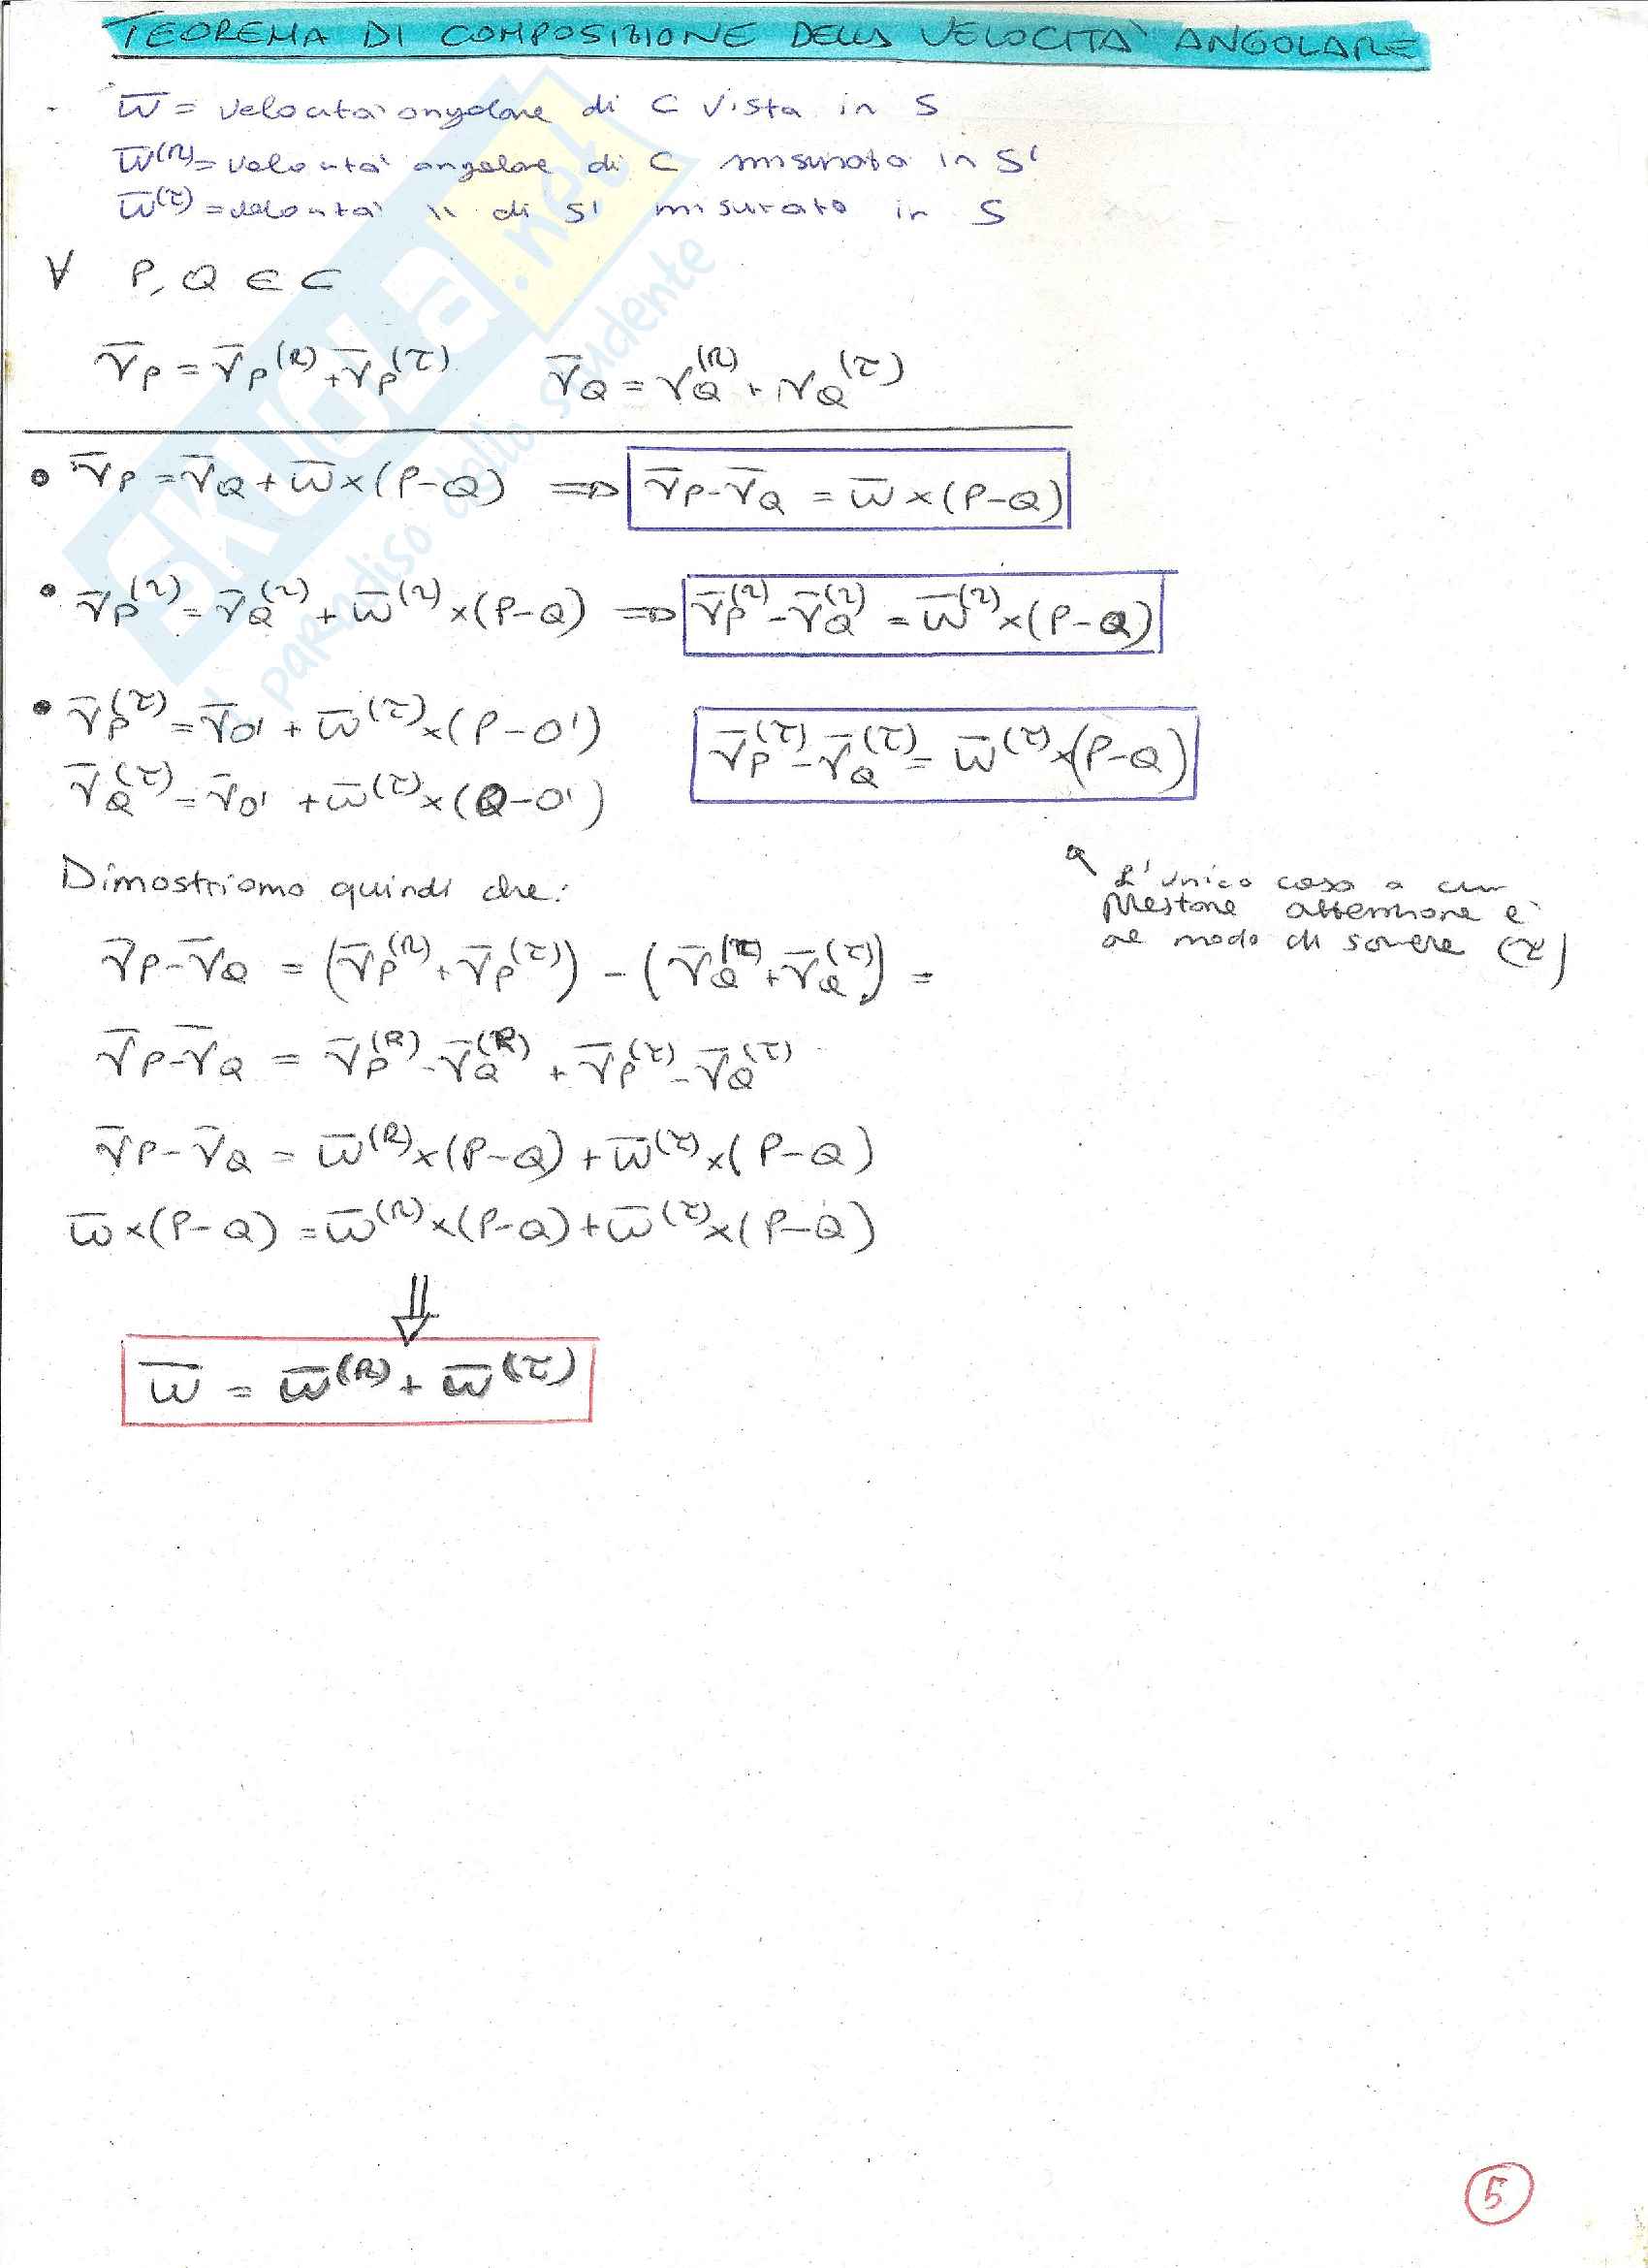 TEOREMA DI COMPOSIZIONE DELLA VELOCITA' ANGOLARE
- w̅ = velocità angolare di C vista in S
w̅⁽ᴿ⁾ = velocità angolare di C misurata in S'
w̅⁽τ⁾ = velocità " di S' misurato in S
∀ P, Q ∈ C
v̅P = v̅P(R) + v̅P(τ) v̅Q = vQ(R) + vQ(τ)
• v̅P = v̅Q + w̅ × (P-Q) ⇒ v̅P - v̅Q = w̅ × (P-Q)
• v̅P(r) = v̅Q(r) + w̅(r) × (P-Q) ⇒ v̅P(r) - v̅Q(r) = w̅(r) × (P-Q)
• v̅P(τ) = v̅O' + w̅(τ) × (P-O')
v̅Q(τ) = v̅O' + w̅(τ) × (Q-O')
v̅P(τ) - v̅Q(τ) = w̅(τ) × (P-Q)
L'unico caso a cui
prestare attenzione è
al modo di scrivere (τ)
Dimostriamo quindi che:
v̅P - v̅Q = (v̅P(R) + v̅P(τ)) - (v̅Q(R) + v̅Q(τ)) =
v̅P - v̅Q = v̅P(R) - v̅Q(R) + v̅P(τ) - v̅Q(τ)
v̅P - v̅Q = w̅(R) × (P-Q) + w̅(τ) × (P-Q)
w̅ × (P-Q) = w̅(R) × (P-Q) + w̅(τ) × (P-Q)
⇓
w̅ = w̅(R) + w̅(τ)
5
SKUOLA.net
il paradiso dello studente